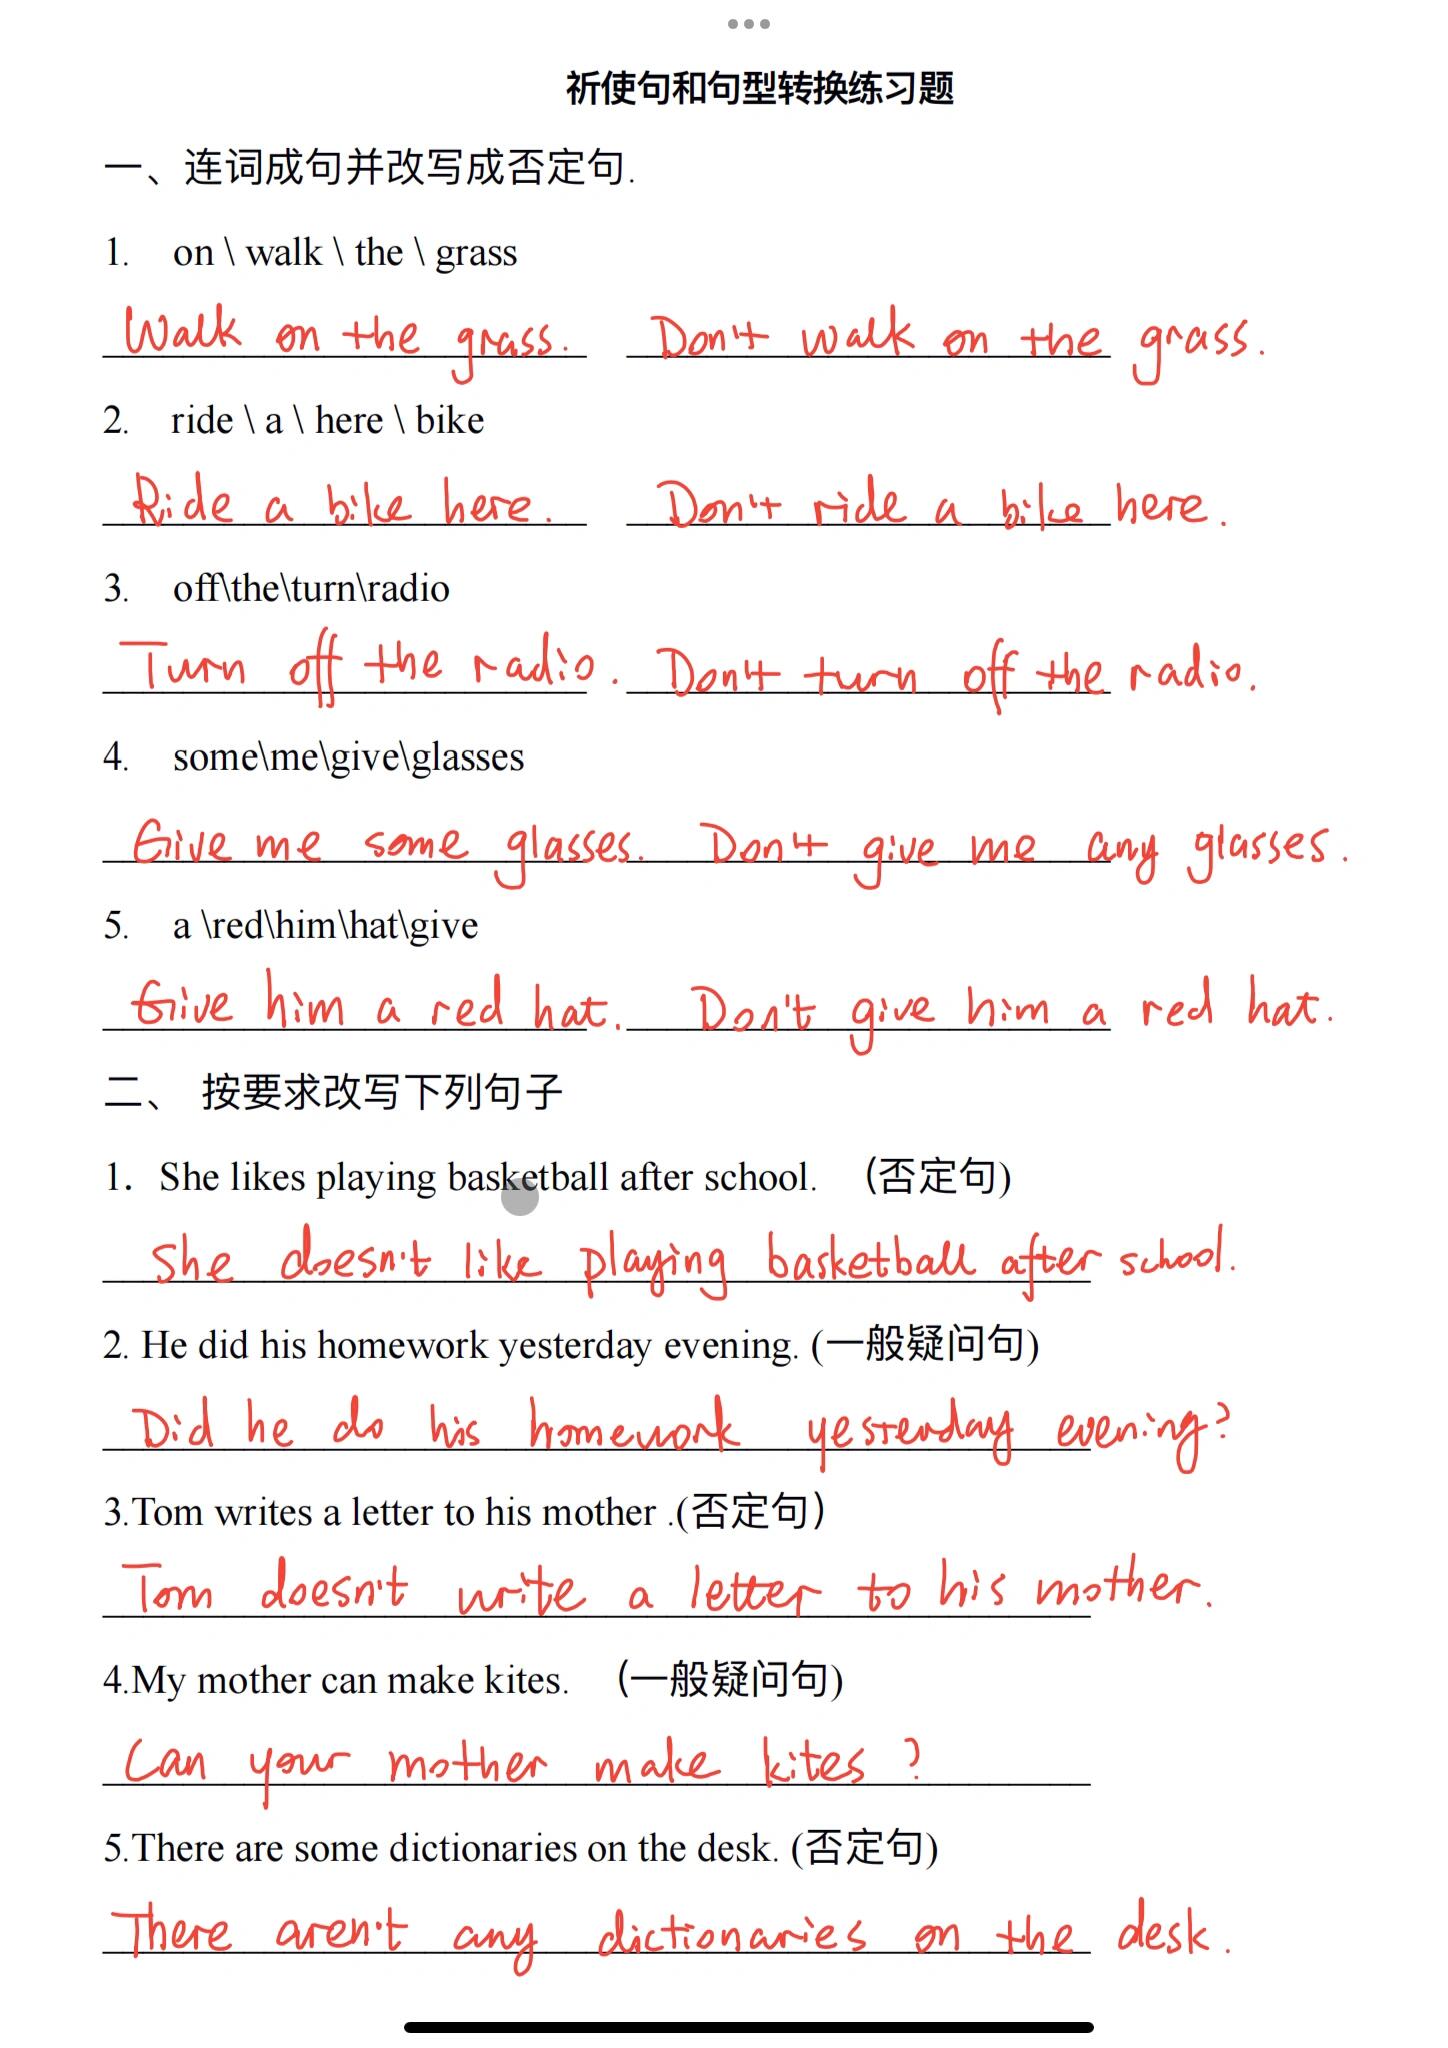 祈使句和句型转换练习题
一、连词成句并改写成否定句.
1. on \ walk \ the \ grass
Walk on the grass. Don't walk on the grass.
2. ride \ a \ here \ bike
Ride a bike here. Don't ride a bike here.
3. off\the\turn\radio
Turn off the radio. Don't turn off the radio.
4. some\me\give\glasses
Give me some glasses. Don't give me any glasses.
5. a \red\him\hat\give
Give him a red hat. Don't give him a red hat.
二、 按要求改写下列句子
1. She likes playing basketball after school. (否定句)
She doesn't like playing basketball after school.
2. He did his homework yesterday evening. (一般疑问句)
Did he do his homework yesterday evening?
3.Tom writes a letter to his mother .(否定句)
Tom doesn't write a letter to his mother.
4.My mother can make kites. (一般疑问句)
Can your mother make kites ?
5.There are some dictionaries on the desk. (否定句)
There aren't any dictionaries on the desk.